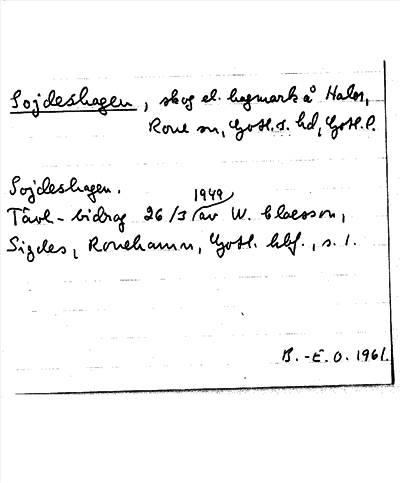 Sojdeshagen, skog el. hagmark å Halor,
Rone sn, Gotl. s. hd, Gotl. l.
Sojdeshagen.
1949
Tävl-bidrag 26/3 av W. Claesson,
Sigdes, Ronehamn, Gotl. hbf., s. 1.
B.-E. O. 1961.